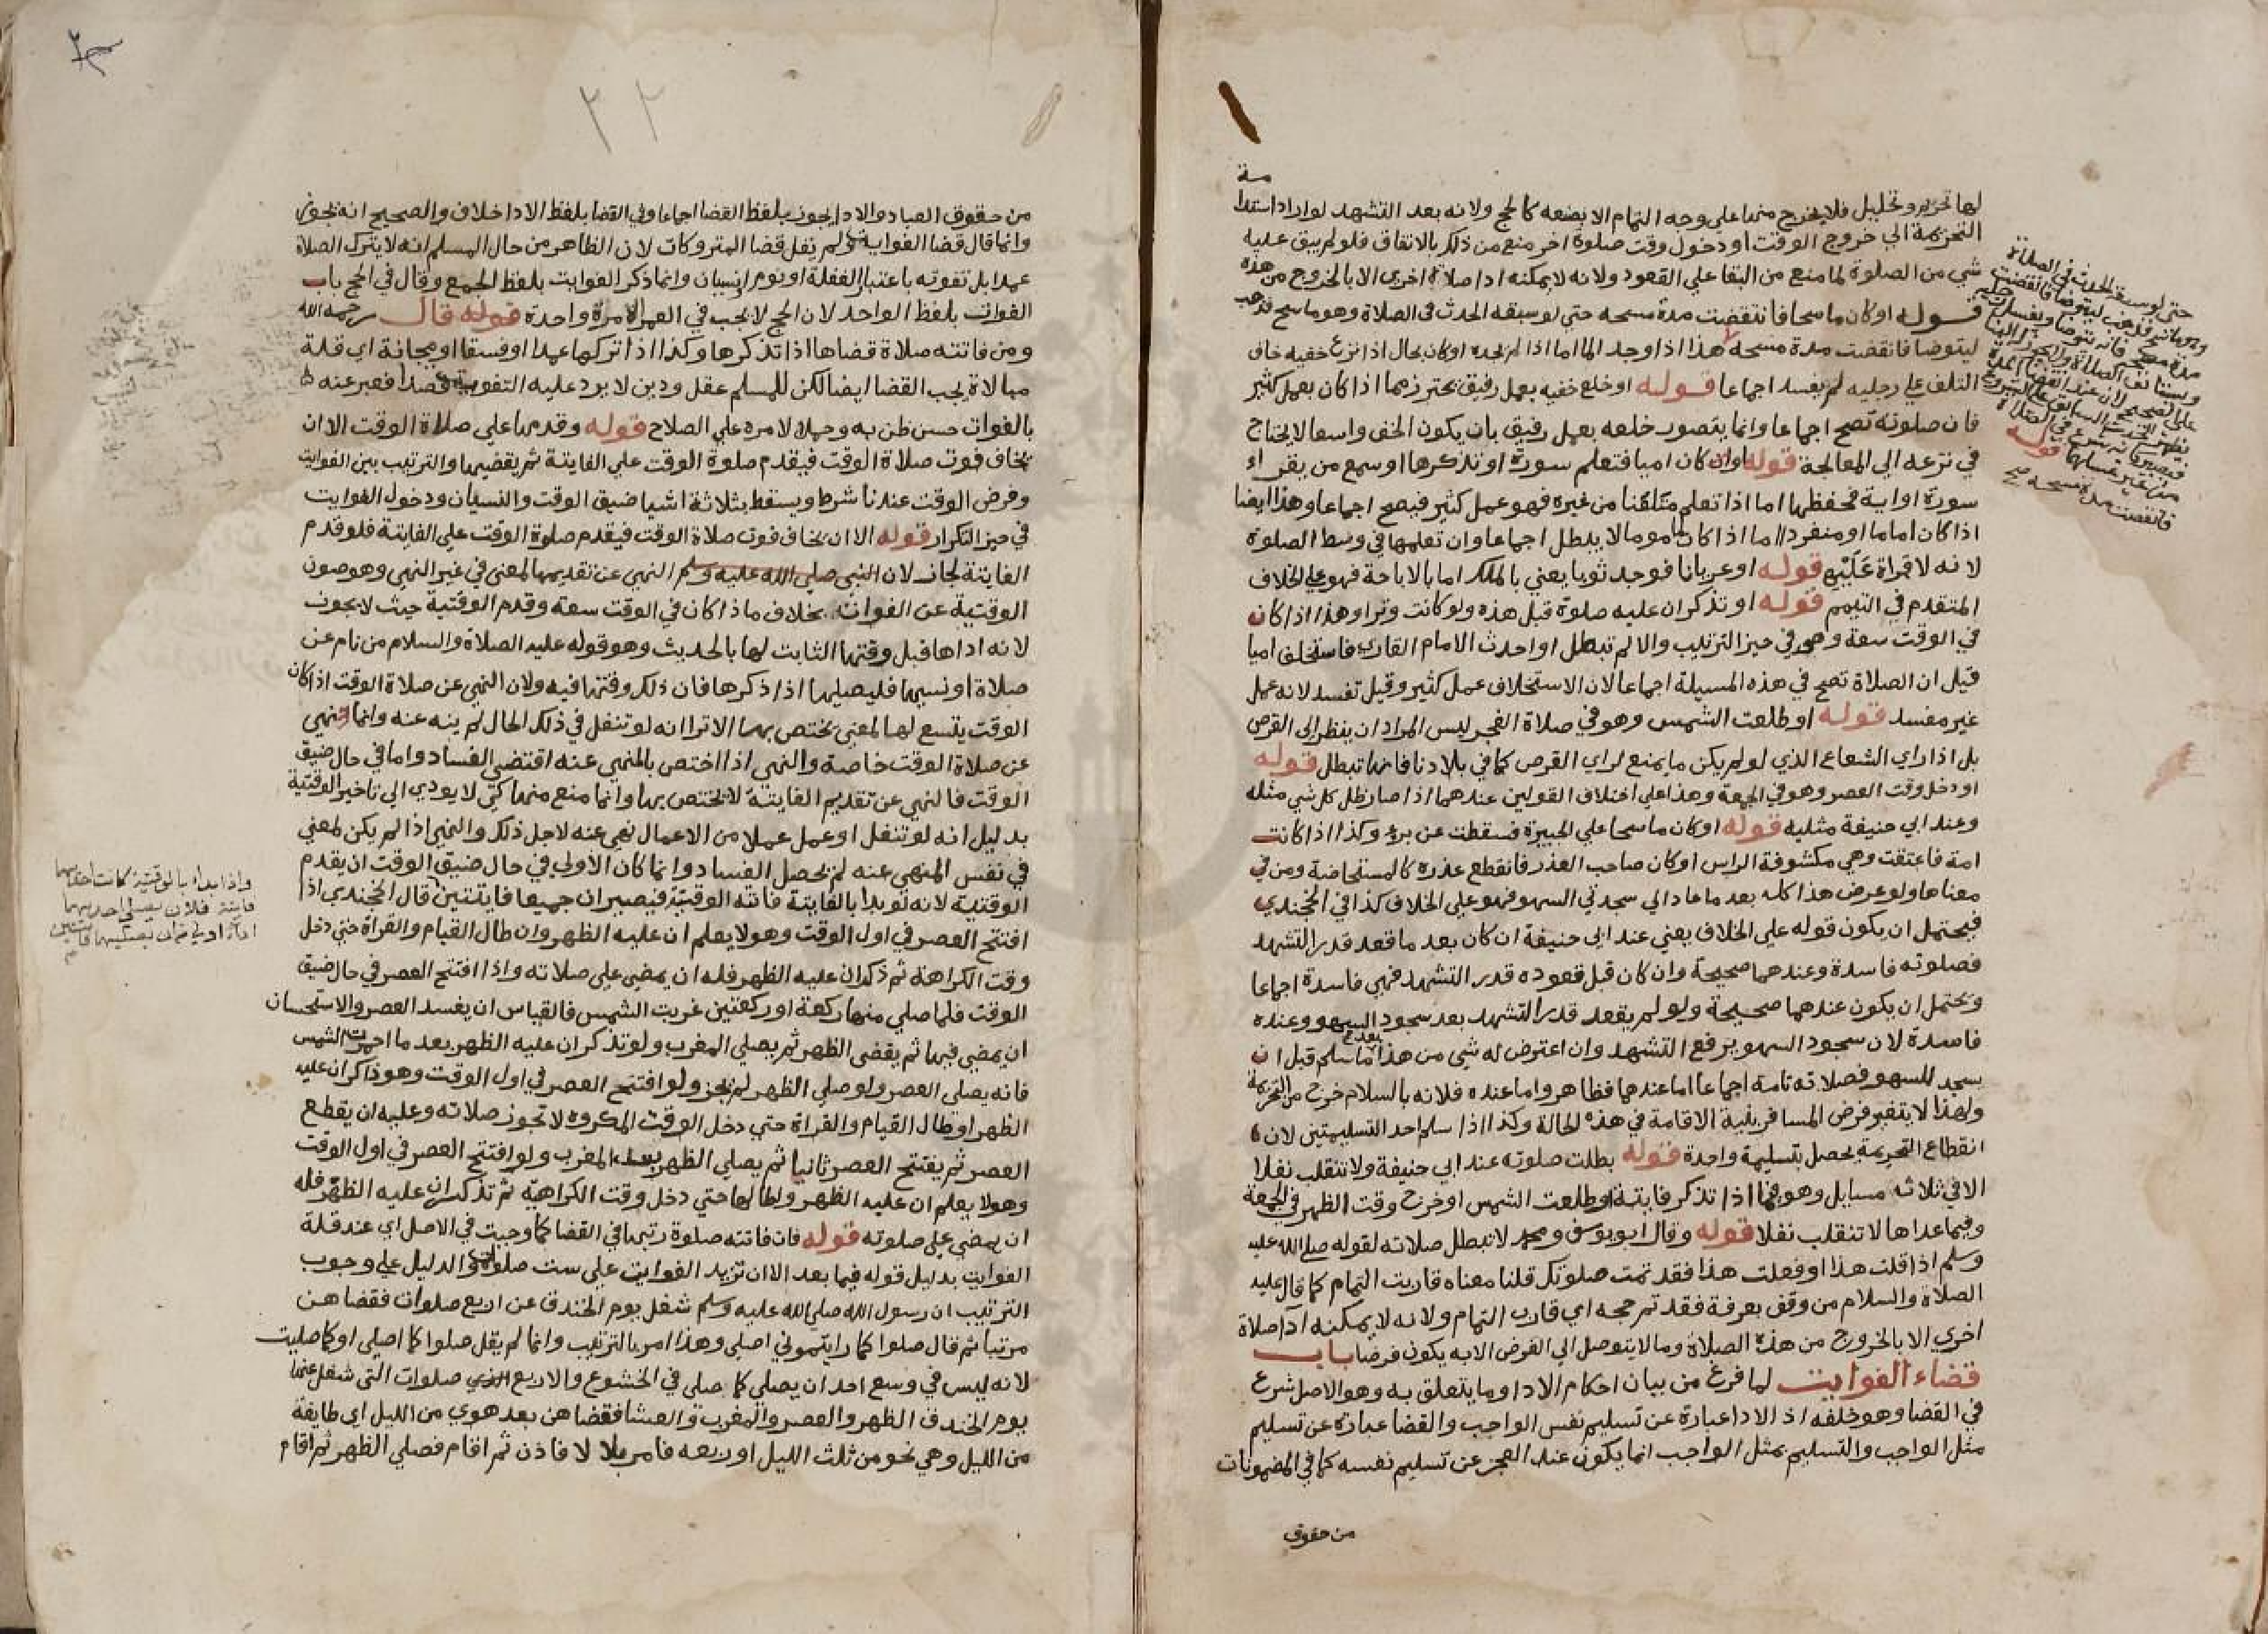 مة
لها تحريم وتحليل فلا يخرج منها علي وجه التمام الا بضعه كالحج ولانه بعد التشهد لو اراد استدا
التحريمة الي خروج الوقت او دخول وقت صلوة اخر منع من ذلك بالاتفاق فلو لم يبق عليه
شي من الصلوة لما منع من البقا علي القعود ولانه لا يمكنه ادا صلاة اخري الا بالخروج من هذه
قوله او كان ماسحا فانتقضت مدة مسحه حتي لو سبقه الحدث في الصلاة وهو ماسح فذهب
ليتوضا فانقضت مدة مسحه هذا اذا وجد الما اما اذا لم يجده او كان بحال اذا نزع خفيه خاف
التلف علي رجليه لم يفسد اجماعا قوله او خلع خفيه بعمل رفيق يحترز مما اذا كان بعمل كثير
فان صلوته تصح اجماعا وانما يتصور خلعه بعمل رفيق بان يكون الخف واسعا لا يحتاج
في نزعه الي المعالجة قوله او ان كان اميا فتعلم سورة او تذكرها او سمع من يقراء
سورة او اية فحفظها اما اذا تعلم متلقنا من غيره فهو عمل كثير فيصح اجماعا وهذا ايضا
اذا كان اماما او منفردا اما اذا كان ماموما لا يبطل اجماعا وان تعلمها في وسط الصلوة
لانه لا قراة عليه قوله او عريانا فوجد ثوبا يعني بالملك اما بالاباحة فهو علي الخلاف
المتقدم في التيمم قوله او تذكر ان عليه صلوة قبل هذه ولو كانت وترا وهذا اذا كان
في الوقت سعة وهو في حيز الترتيب والا لم تبطل او احدث الامام القاري فاستخلف اميا
قيل ان الصلاة تصح في هذه المسيلة اجماعا لان الاستخلاف عمل كثير وقيل تفسد لانه عمل
غير مفسد قوله او طلعت الشمس وهو في صلاة الفجر ليس المراد ان ينظر الي القرص
بل اذا راي الشعاع الذي لو لم يكن ما يمنع لراي القرص كما في بلادنا فانها تبطل قوله
او دخل وقت العصر وهو في الجمعة وهذا علي اختلاف القولين عندهما اذا صار ظل كل شي مثله
وعند ابي حنيفة مثليه قوله او كان ماسحا علي الجبيرة فسقطت عن برء وكذا اذا كانت
امة فاعتقت وهي مكشوفة الراس او كان صاحب العذر فانقطع عذره كالمستحاضة ومن في
معناها ولو عرض هذا كله بعد ما عاد الي سجدتي السهو فهو علي الخلاف كذا في الخجندي
فيحتمل ان يكون قوله علي الخلاف يعني عند ابي حنيفة ان كان بعد ما قعد قدر التشهد
فصلوته فاسدة وعندهما صحيحة وان كان قبل قعوده قدر التشهد فهي فاسدة اجماعا
ويحتمل ان يكون عندهما صحيحة ولو لم يقعد قدر التشهد بعد سجود السهو وعنده
فاسدة لان سجود السهو يرفع التشهد وان اعترض له شي من هذا بعد ما سلم قبل ان
يسجد للسهو فصلاته تامة اجماعا اما عندهما فظاهر واما عنده فلانه بالسلام خرج من التحريمة
ولهذا لا يتغير فرض المسافر بنية الاقامة في هذه الحالة وكذا اذا سلم احد التسليمتين لان
انقطاع التحريمة يحصل بتسليمة واحدة قوله بطلت صلوته عند ابي حنيفة ولا تنقلب نفلا
الا في ثلاثه مسايل وهو فيما اذا تذكر فايتة او طلعت الشمس او خرج وقت الظهر في الجمعة
وفيما عداها لا تنقلب نفلا قوله وقال ابو يوسف ومحمد لا تبطل صلاته لقوله صلي الله عليه
وسلم اذا قلت هذا او فعلت هذا فقد تمت صلوتك قلنا معناه قاربت التمام كما قال عليه
الصلاة والسلام من وقف بعرفة فقد تم حجه اي قارب التمام ولانه لا يمكنه ادا صلاة
اخري الا بالخروج من هذه الصلاة وما لا يتوصل الي الفرض الا به يكون فرضا باب
قضاء الفوايت لما فرغ من بيان احكام الادا وما يتعلق به وهو الاصل شرع
في القضا وهو خلفه اذ الادا عبارة عن تسليم نفس الواجب والقضا عبارة عن تسليم
مثل الواجب والتسليم بمثل الواجب انما يكون عند العجز عن تسليم نفسه كما في المضمونات
من حقوق
حتي لو سبقه الحدث في الصلاة
وهو ماسح فذهب ليتوضا فانقضت
مدة مسحه فانه يتوضا ويغسل رجليه
ويستانف الصلاة
قوله
فانقضت مدة مسحه صح
٢٢
من حقوق العباد والادا يجوز بلفظ القضا اجماعا وفي القضا بلفظ الادا خلاف والصحيح انه يجوز
وانما قال قضا الفوايت ولم يقل قضا المتروكات لان الظاهر من حال المسلم انه لا يترك الصلاة
عمدا بل تفوته باعتبار الغفلة او نوم او نسيان وانما ذكر الفوايت بلفظ الجمع وقال في الحج باب
الفوات بلفظ الواحد لان الحج لا يجب في العمر الا مرة واحدة قوله قال رحمه الله
ومن فاتته صلاة قضاها اذا تذكرها وكذا اذا تركها عمدا او فسقا او مجانة اي قلة
مبالاة يجب القضا ايضا لكن للمسلم عقل ودين لا يرد عليه التفويت قصدا فعبر عنه
بالفوات حسن ظن به وحملا لامره علي الصلاح قوله وقدمها علي صلاة الوقت الا ان
يخاف فوت صلاة الوقت فيقدم صلوة الوقت علي الفايتة ثم يقضيها والترتيب بين الفوايت
وفرض الوقت عندنا شرط ويسقط بثلاثة اشيا ضيق الوقت والنسيان ودخول الفوايت
في حيز التكرار قوله الا ان يخاف فوت صلاة الوقت فيقدم صلوة الوقت علي الفايتة فلو قدم
الفايتة لجاز لان النبي صلي الله عليه وسلم النهي عن تقديمها لمعني في غير النهي وهو صون
الوقتية عن الفوات بخلاف ما اذا كان في الوقت سعة وقدم الوقتية حيث لا يجوز
لانه اداها قبل وقتها الثابت لها بالحديث وهو قوله عليه الصلاة والسلام من نام عن
صلاة او نسيها فليصليها اذا ذكرها فان ذلك وقتها فيه ولان النهي عن صلاة الوقت اذا كان
الوقت يتسع لها لمعني يختص بها الا ترا انه لو تنفل في ذلك الحال لم ينه عنه وانما نهي
عن صلاة الوقت خاصة والنهي اذا اختص بالمنهي عنه اقتضي الفساد واما في حال ضيق
الوقت فالنهي عن تقديم الفايتة لا يختص بها وانما منع منها كي لا يودي الي تاخير الوقتية
بدليل انه لو تنفل او عمل عملا من الاعمال نهي عنه لاجل ذلك والنهي اذا لم يكن لمعني
في نفس المنهي عنه لم يحصل الفساد وانما كان الاولي في حال ضيق الوقت ان يقدم
الوقتية لانه لو بدا بالفايتة فاتته الوقتية فيصيران جميعا فايتتين قال الخجندي اذا
افتتح العصر في اول الوقت وهو لا يعلم ان عليه الظهر وان طال القيام والقراة حتي دخل
وقت الكراهة ثم ذكر ان عليه الظهر فله ان يمضي علي صلاته واذا افتتح العصر في حال ضيق
الوقت فلما صلي منها ركعة او ركعتين غربت الشمس فالقياس ان يفسد العصر والاستحسان
ان يمضي فيها ثم يقضي الظهر ثم يصلي المغرب ولو تذكر ان عليه الظهر بعد ما احمرت الشمس
فانه يصلي العصر ولو صلي الظهر لم يجز ولو افتتح العصر في اول الوقت وهو ذاكر ان عليه
الظهر او طال القيام والقراة حتي دخل الوقت المكروه لا تجوز صلاته وعليه ان يقطع
العصر ثم يفتتح العصر ثانيا ثم يصلي الظهر بعد المغرب ولو افتتح العصر في اول الوقت
وهو لا يعلم ان عليه الظهر واطالها حتي دخل وقت الكراهية ثم تذكر ان عليه الظهر فله
ان يمضي علي صلوته قوله فان فاتته صلوة رتبها في القضا كما وجبت في الاصل اي عند قلة
الفوايت بدليل قوله فيما بعد الا ان تزيد الفوايت علي ست صلوات والدليل علي وجوب
الترتيب ان رسول الله صلي الله عليه وسلم شغل يوم الخندق عن اربع صلوات فقضاهن
مرتبا ثم قال صلوا كما رايتموني اصلي وهذا امر بالترتيب وانما لم يقل صلوا كما اصلي او كما صليت
لانه ليس في وسع احد ان يصلي كما صلي في الخشوع والاربع صلوات التي شغل عنها
يوم الخندق الظهر والعصر والمغرب والعشا فقضاهن بعد هوي من الليل اي طايفة
من الليل وهي نحو من ثلث الليل او ربعه فامر بلالا فاذن ثم اقام فصلي الظهر ثم اقام
واذا بداء بالوقتية كانت احديهما
فايتة فلان يصلي احديهما
اداء اولي من ان يصليهما فايتتين